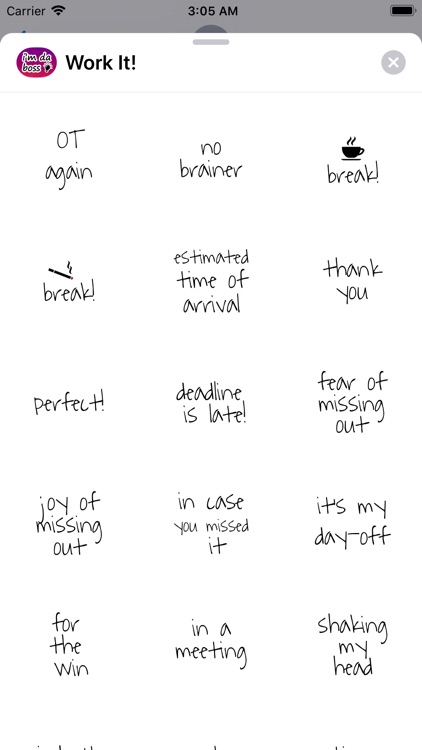 Carrier 3:05 AM
i'm da
boss
Work It!
OT
again
no
brainer
break!
break!
estimated
time of
arrival
thank
you
perfect!
deadline
is late!
fear of
missing
out
joy of
missing
out
in case
you missed
it
it's my
day-off
for
the
win
in a
meeting
shaking
my
head